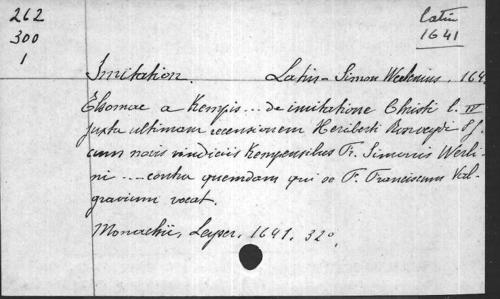 262
300
1
Latin
1641
Imitation. Latin - Simon Werlinius. 164
Thomae a Kempis... de imitatione Christi l. IV
juxta ultimam recensionem Heriberti Rosweydi S.J.
cum novis vindiciis Kempensibus Fr. Simonis Werli-
ni --- contra quemdam qui se F. Franciscum Val-
gravium vocat.
Monachii, Leyser, 1641. 32o.